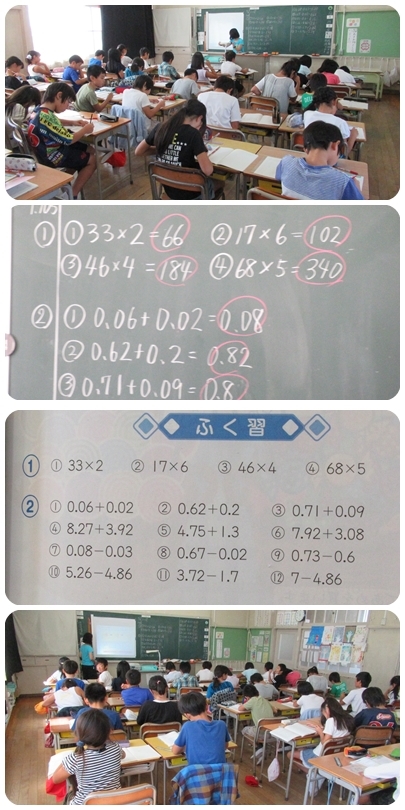 1.103
① ① 33×2=66 ② 17×6=102
③ 46×4=184 ④ 68×5=340
② ① 0.06+0.02=0.08
② 0.62+0.2=0.82
③ 0.71+0.09=0.8
ふく習
① ① 33×2 ② 17×6 ③ 46×4 ④ 68×5
② ① 0.06+0.02 ② 0.62+0.2 ③ 0.71+0.09
④ 8.27+3.92 ⑤ 4.75+1.3 ⑥ 7.92+3.08
⑦ 0.08−0.03 ⑧ 0.67−0.02 ⑨ 0.73−0.6
⑩ 5.26−4.86 ⑪ 3.72−1.7 ⑫ 7−4.86